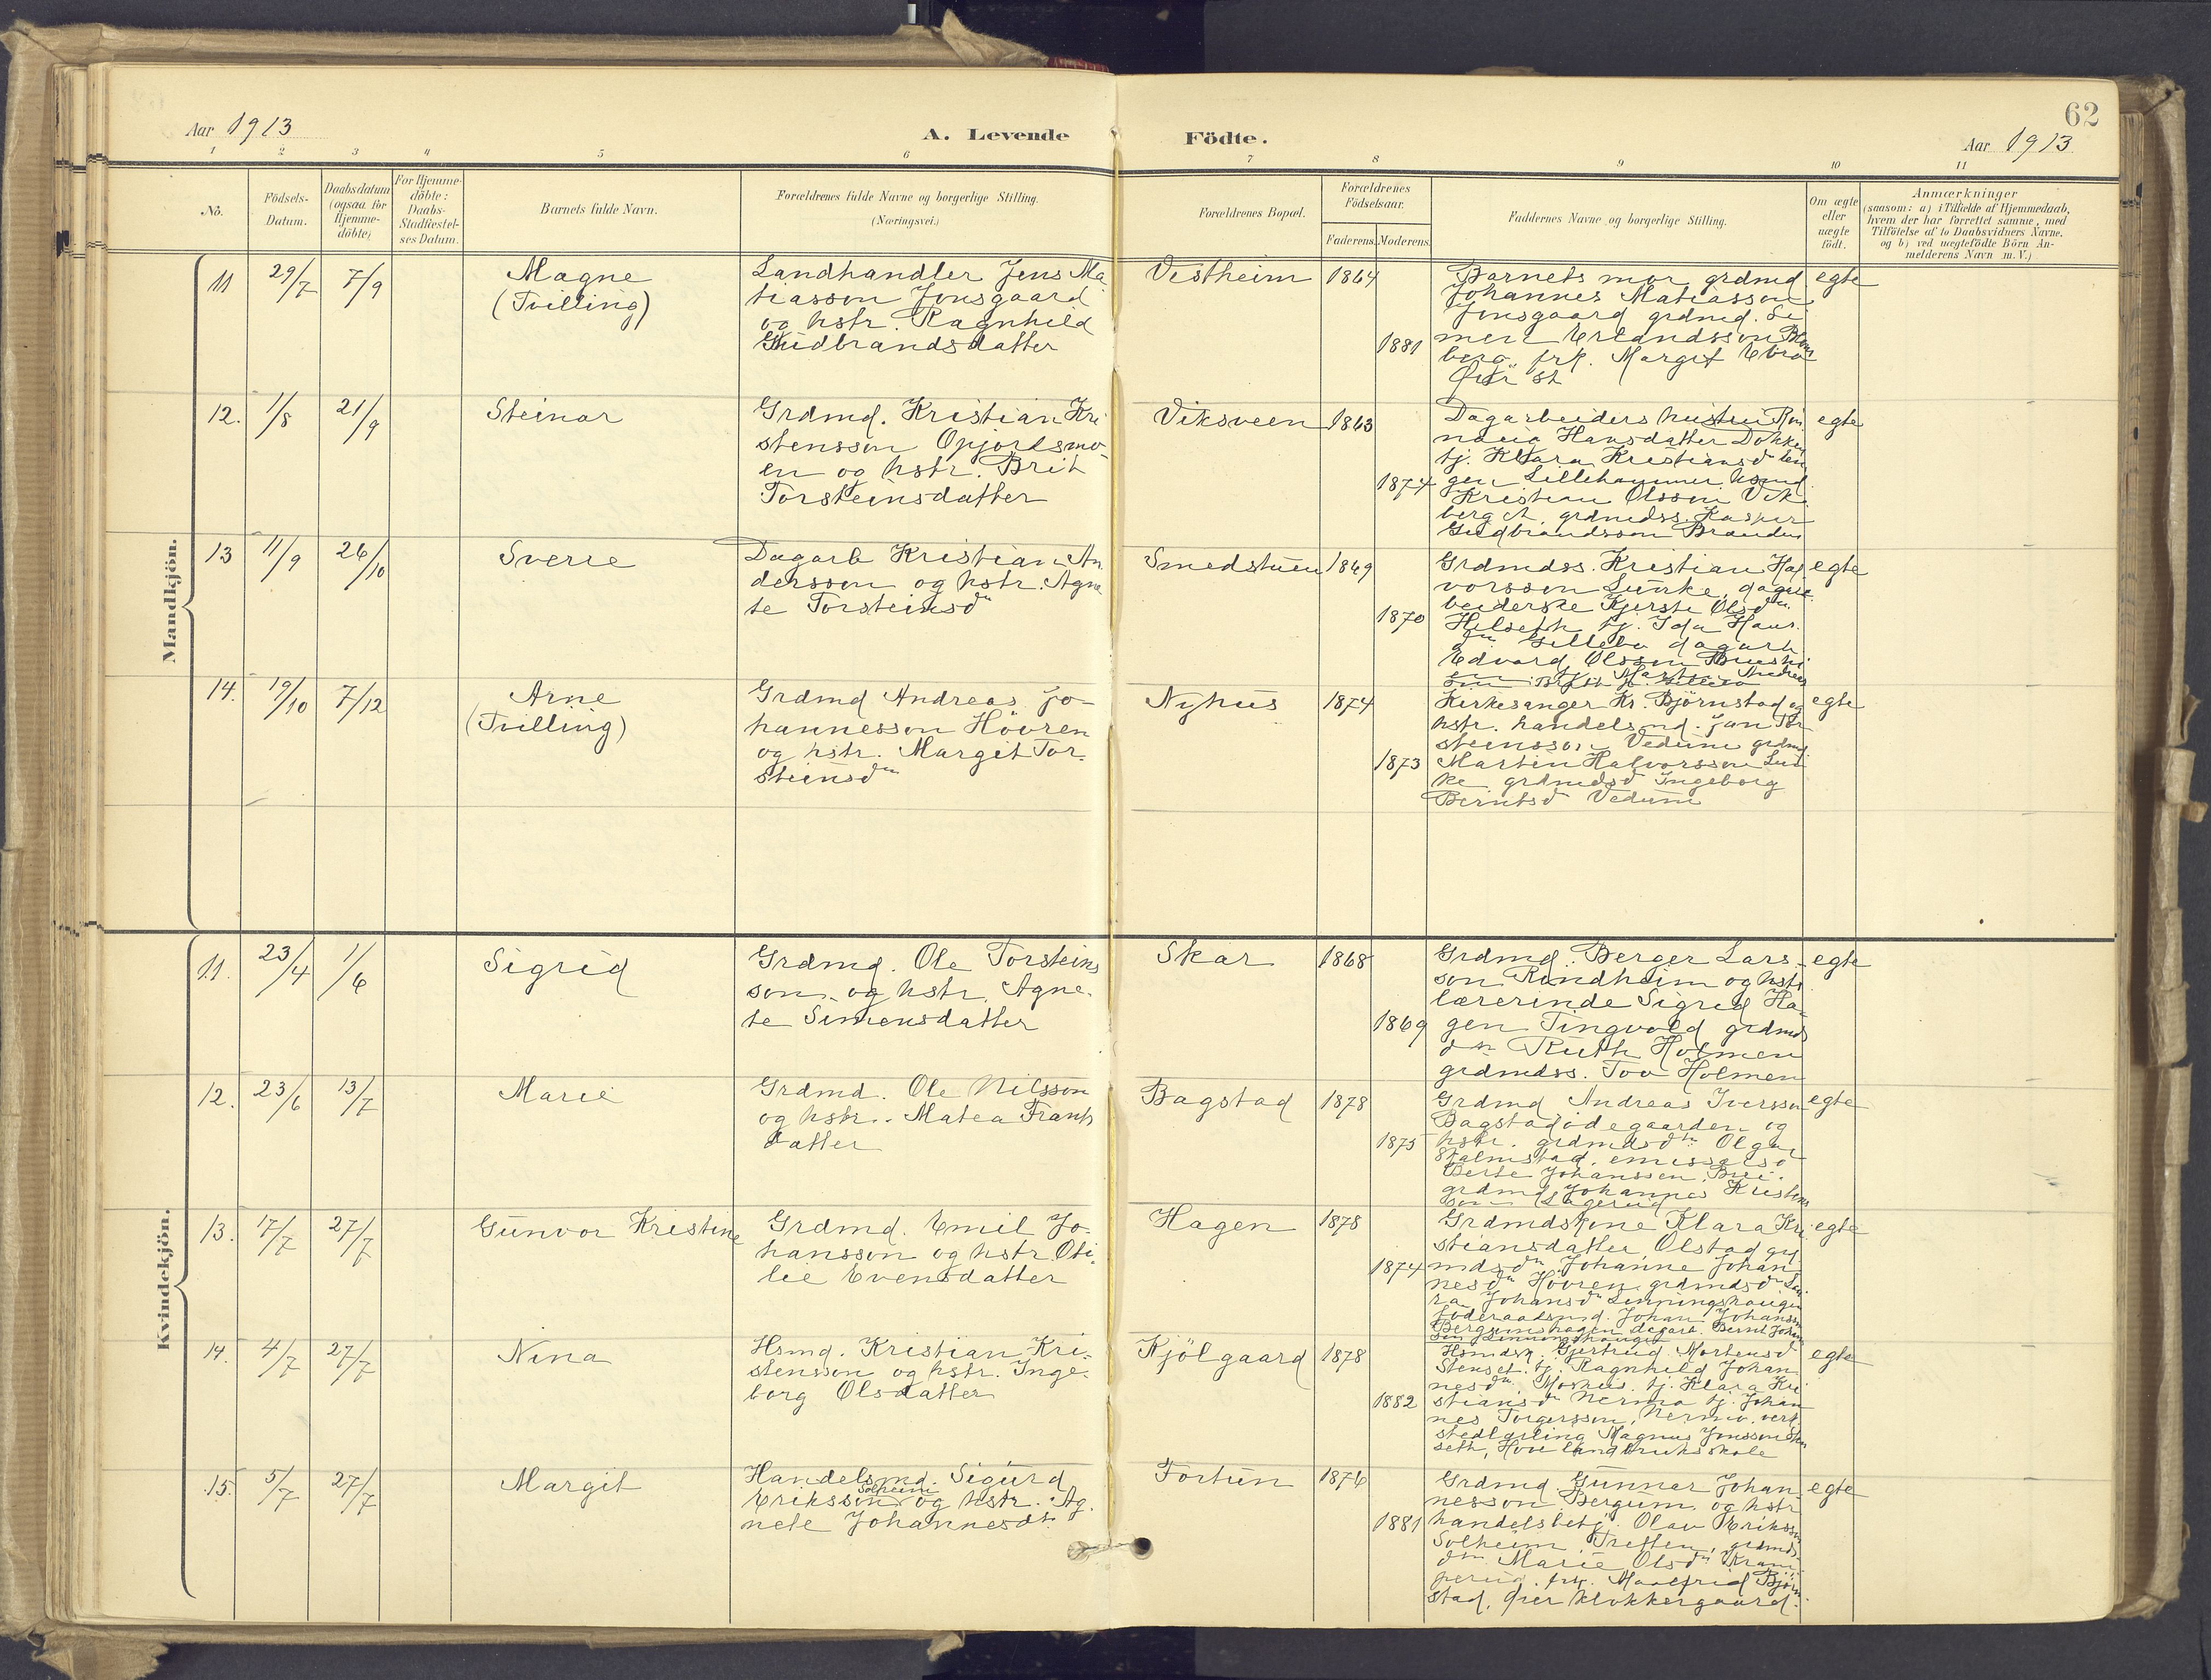 62
Aar 1913
A. Levende Födte.
Aar 1913
1 2 3 4 5 6 7 8 9 10 11
No.
Födsels-
Datum.
Daabsdatum
(ogsaa for
Hjemme-
döbte)
For Hjemme-
döbte:
Daabs-
Stadfæstel-
ses Datum.
Barnets fulde Navn.
Forældrenes fulde Navne og borgerlige Stilling.
(Næringsvei.)
Forældrenes Bopæl.
Forældrenes
Födselsaar.
Faderens. Moderens.
Faddernes Navne og borgerlige Stilling.
Om ægte
eller
uægte
födt.
Anmærkninger
(saasom: a) i Tilfælde af Hjemmedaab,
hvem der har forrettet samme, med
Tilföielse af to Daabsvidners Navne,
og b) ved uægtefödte Börn An-
melderens Navn m.V.)
Mandkjön.
11 29/7 7/9
Magne
(Tvilling)
Landhandler Jens Ma
tiasson Jonsgaard
og hstr. Ragnhild
Gudbrandsdatter
Vestheim 1864
1881
Barnets mor grdmd
Johannes Matiasson
Jonsgaard grdmd. Si
men Erlandsson
berg. frk. Margit
egte
12. 1/8 21/9
Steinar
Grdmd. Kristian Kri
stensson Opjordsmo-
en og hstr. Brit
Torsteinsdatter
Viksveen 1863
1874
Dagarbeiders hustru
Hansdatter Dokken
tj. Klara Kristiansd
Lillehammer
Kristian Olsson Vik
berg grdmdss. Kasper
Gudbrandsson
egte
13 11/9 26/10
Sverre
Dagarb Kristian An
dersson og hstr. Agne
te Torsteinsd
Smedstuen 1869
1870
Grdmdss. Kristian Hal
vorsson Lunke, dagar
beiderske Kjersti Olsd
Hilseth tj. Ida Hans
Gillebo dagarb
Edvard Olsson
egte
14. 19/10 7/12
Arne
(Tvilling)
Grdmd Andreas Jo-
hannesson Hövren
og hstr. Margit Tor-
steinsd
Nyhus 1874
1873
Kirkesanger Kr. Björnstad og
hstr. handelsmd. Jan Tor
steinsson Vedum grdmd.
Martin Halvorsson Lun
ke grdmdsd Ingeborg
Berntsd Vedum
egte
Kvindekjön.
11. 23/4 1/6
Sigrid
Grdmd. Ole Torsteins
son og hstr. Agne-
te Simensdatter
Skar 1868
1869
Grdmd. Berger Lars-
son Rindheim og hstr
lærerinde Sigrid Ha-
gen Tingvold grdmds
dtr Ruth Holmen
grdmdss. Tov Holmen
egte
12. 23/6 13/7
Marie
Grdmd. Ole Nilsson
og hstr. Matea Frants
datter
Bagstad 1878
1875
Grdmd Andreas Iversson
Bagstadödegaarden og
hstr. grdmdsd Olga
Halmstad. emissærsd
Berte Johanssen
grdmd Johannes Kristens
son
egte
13. 17/7 27/7
Gunvor Kristine
Grdmd. Emil Jo-
hansson og hstr Oti-
lie Evensdatter
Hagen 1878
1874
Grdmdskone Klara Kri
stiansdatter Olstad gr
mdsd Johanne Johan
nesd Hövren grdmdsd La
ra Johansd Linningshaugen
föderaadsmd. Johan Johansson
Bergumshagen dagarb. Bernt Johan
son Linningshauget
egte
14. 4/7 27/7
Nina
Hsmd. Kristian Kri-
stensson og hstr. Inge-
borg Olsdatter
Kjölgaard 1878
1882
Hsmdsk. Gjertrud Mortensd
Stenset. tj. Ragnhild Johan
nesd. Moshus. tj. Klara Kri
stiansd Nermo tj. Johan
nes Torgersson, Nermo, verk
stedlærling Magnus Jonsson
seth, Hove landbruksskole
egte
15. 5/7 27/7
Margit
Handelsmd. Sigurd
Solheim
Eriksson og hstr. Ag-
nete Johannesdt.
Fortun 1876
1881
Grdmd. Gunnar Johan
nesson Bergum og hstr
handelsbetj. Olav Eriksson
Solheim, Tretten, grdmds
dtr Marie Olsd Kram
perud. frk. Maalfrid Björn
stad, Öier klokkergaard.
egte